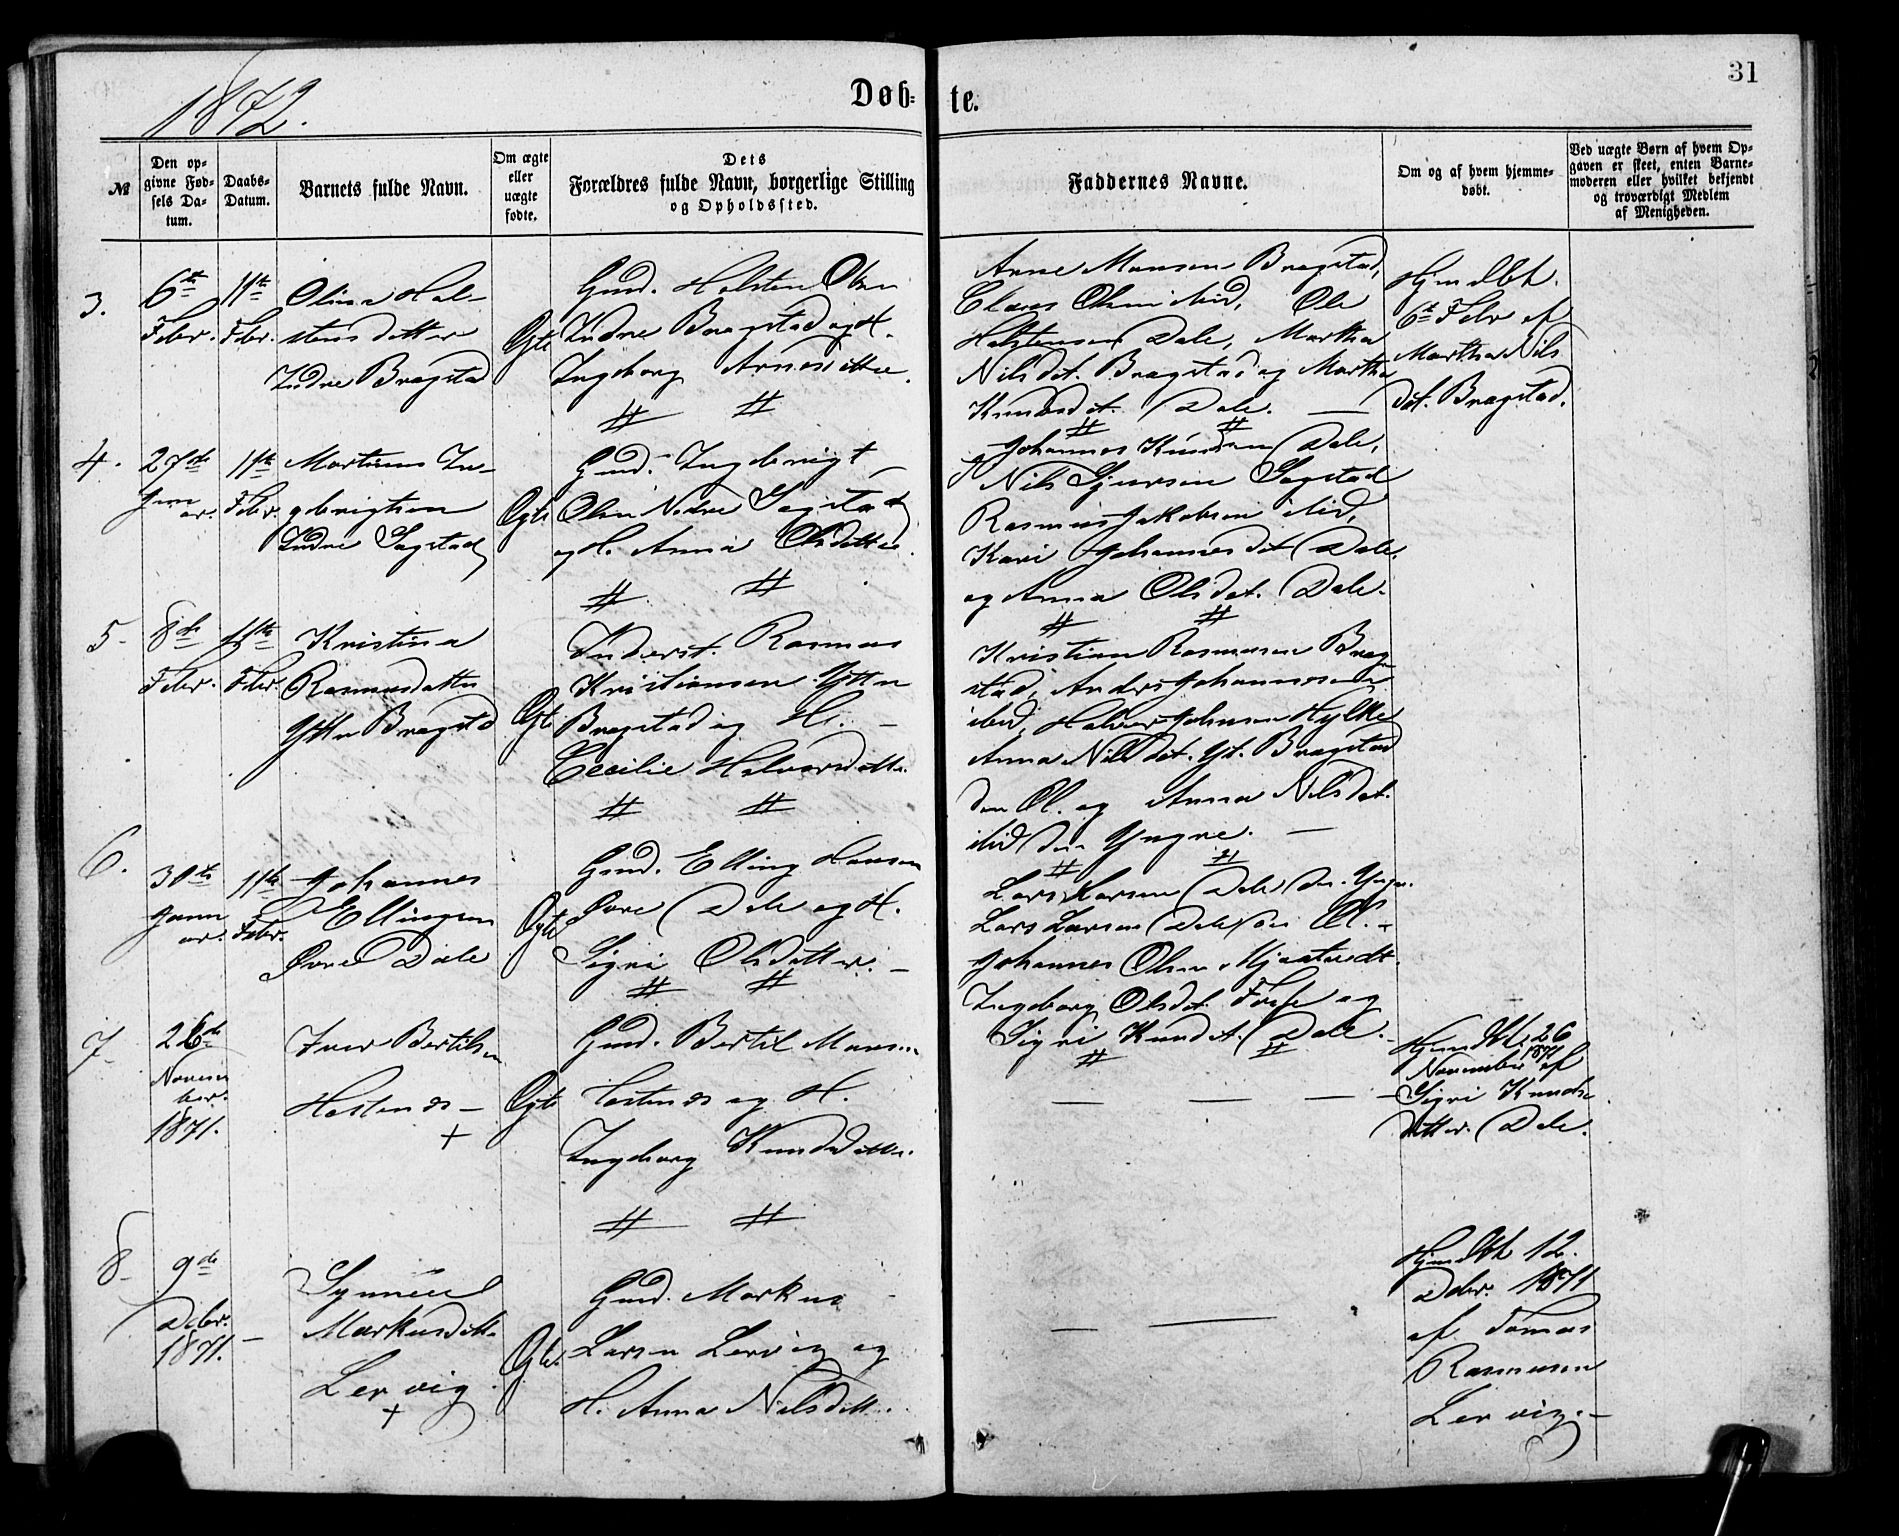 31
1872.
Døb-
te.
№
Den op-
givne Fød-
sels Da-
tum.
Daabs-
Datum.
Barnets fulde Navn.
Om ægte
eller
uægte
fødte.
Dets
Forældres fulde Navn, borgerlige Stilling
og Opholdssted.
Faddernes Navne.
Om og af hvem hjemme-
døbt.
Ved uægte Børn af hvem Op-
gaven er skeet, enten Barne-
moderen eller hvilket bekjendt
og troværdigt Medlem
af Menigheden.
3.
6te
Febr.
11te
Febr.
Olina Hal-
stensdatter
Indre Bragstad
Ægte
Gmd. Halsten Olsen
Indre Bragstad og H.
Ingeborg Arnesdatter.
Arne Monsen Bragstad,
Claus Olsen ibid, Ole
Halstensen Dale, Martha
Nilsdat. Bragstad og Martha
Knudsdt. Dale. —
Hjmdbt.
6te Febr af
Martha Nils
dt. Bragstad.
4.
27de
Janu
ar.
11te
Febr.
Martinus In-
gebrigtsen
Indre Sagstad
Ægte
Gmd. Ingebrigt
Olsen Nedre Sagstad
og H. Anna Olsdatter.
Johannes Knudsen Dale,
Nils Sjursen Sagstad
Rasmus Jakobsen ibid,
Kari Johannesdt Dale.
og Anna Olsdat. Dale.
5.
8de
Febr.
11te
Febr.
Kristina
Rasmusdatter
Yttre Bragstad
Ægte
Inderst. Rasmus
Kristiansen Yttre
Bragstad og H. —
Cecilie Halvorsdatter.
Kristian Rasmusen Brag
stad, Anders Johannesen
ibid, Halvor Johnsen Hylke
Anna Nilsdat. Yt. Bragstad
den Æl. og Anna Nilsdat.
ibid den Yngre. —
6.
30te
Janu
ar.
11te
Febr.
Johannes
Ellingsen
Øvre Dale
Ægte
Gmd. Elling Hansen
Øvre Dale og H.
Sigri Olsdatter. —
Lars Larsen Dale den Yngr.
Lars Larsen Dale den Æl. -
Johannes Olsen Mjaatvedt.
Ingeborg Olsdat. Fosse og
Sigri Knudsdt. Dale.
7.
26de
Novem
ber.
1871.
Iver Bertilsen
Hostenæs —
+
Ægte
Gmd. Bertil Monsen
Hostenæs og H.
Ingeborg Knudsdatter.
— — —
Hjemdbt. 26
November 1871 af
Sigri Knuds-
datter. Dale.
8.
9de
Debr.
1871.
—
Synneve
Markusdatt.
Lervig
+
Ægte.
Gmd. Markus
Larsen Lervig og
H. Anna Nilsdatt.
— —
Hjemdbt 12.
Debr. 1871
af Tomas
Rasmusen
Lervig. —